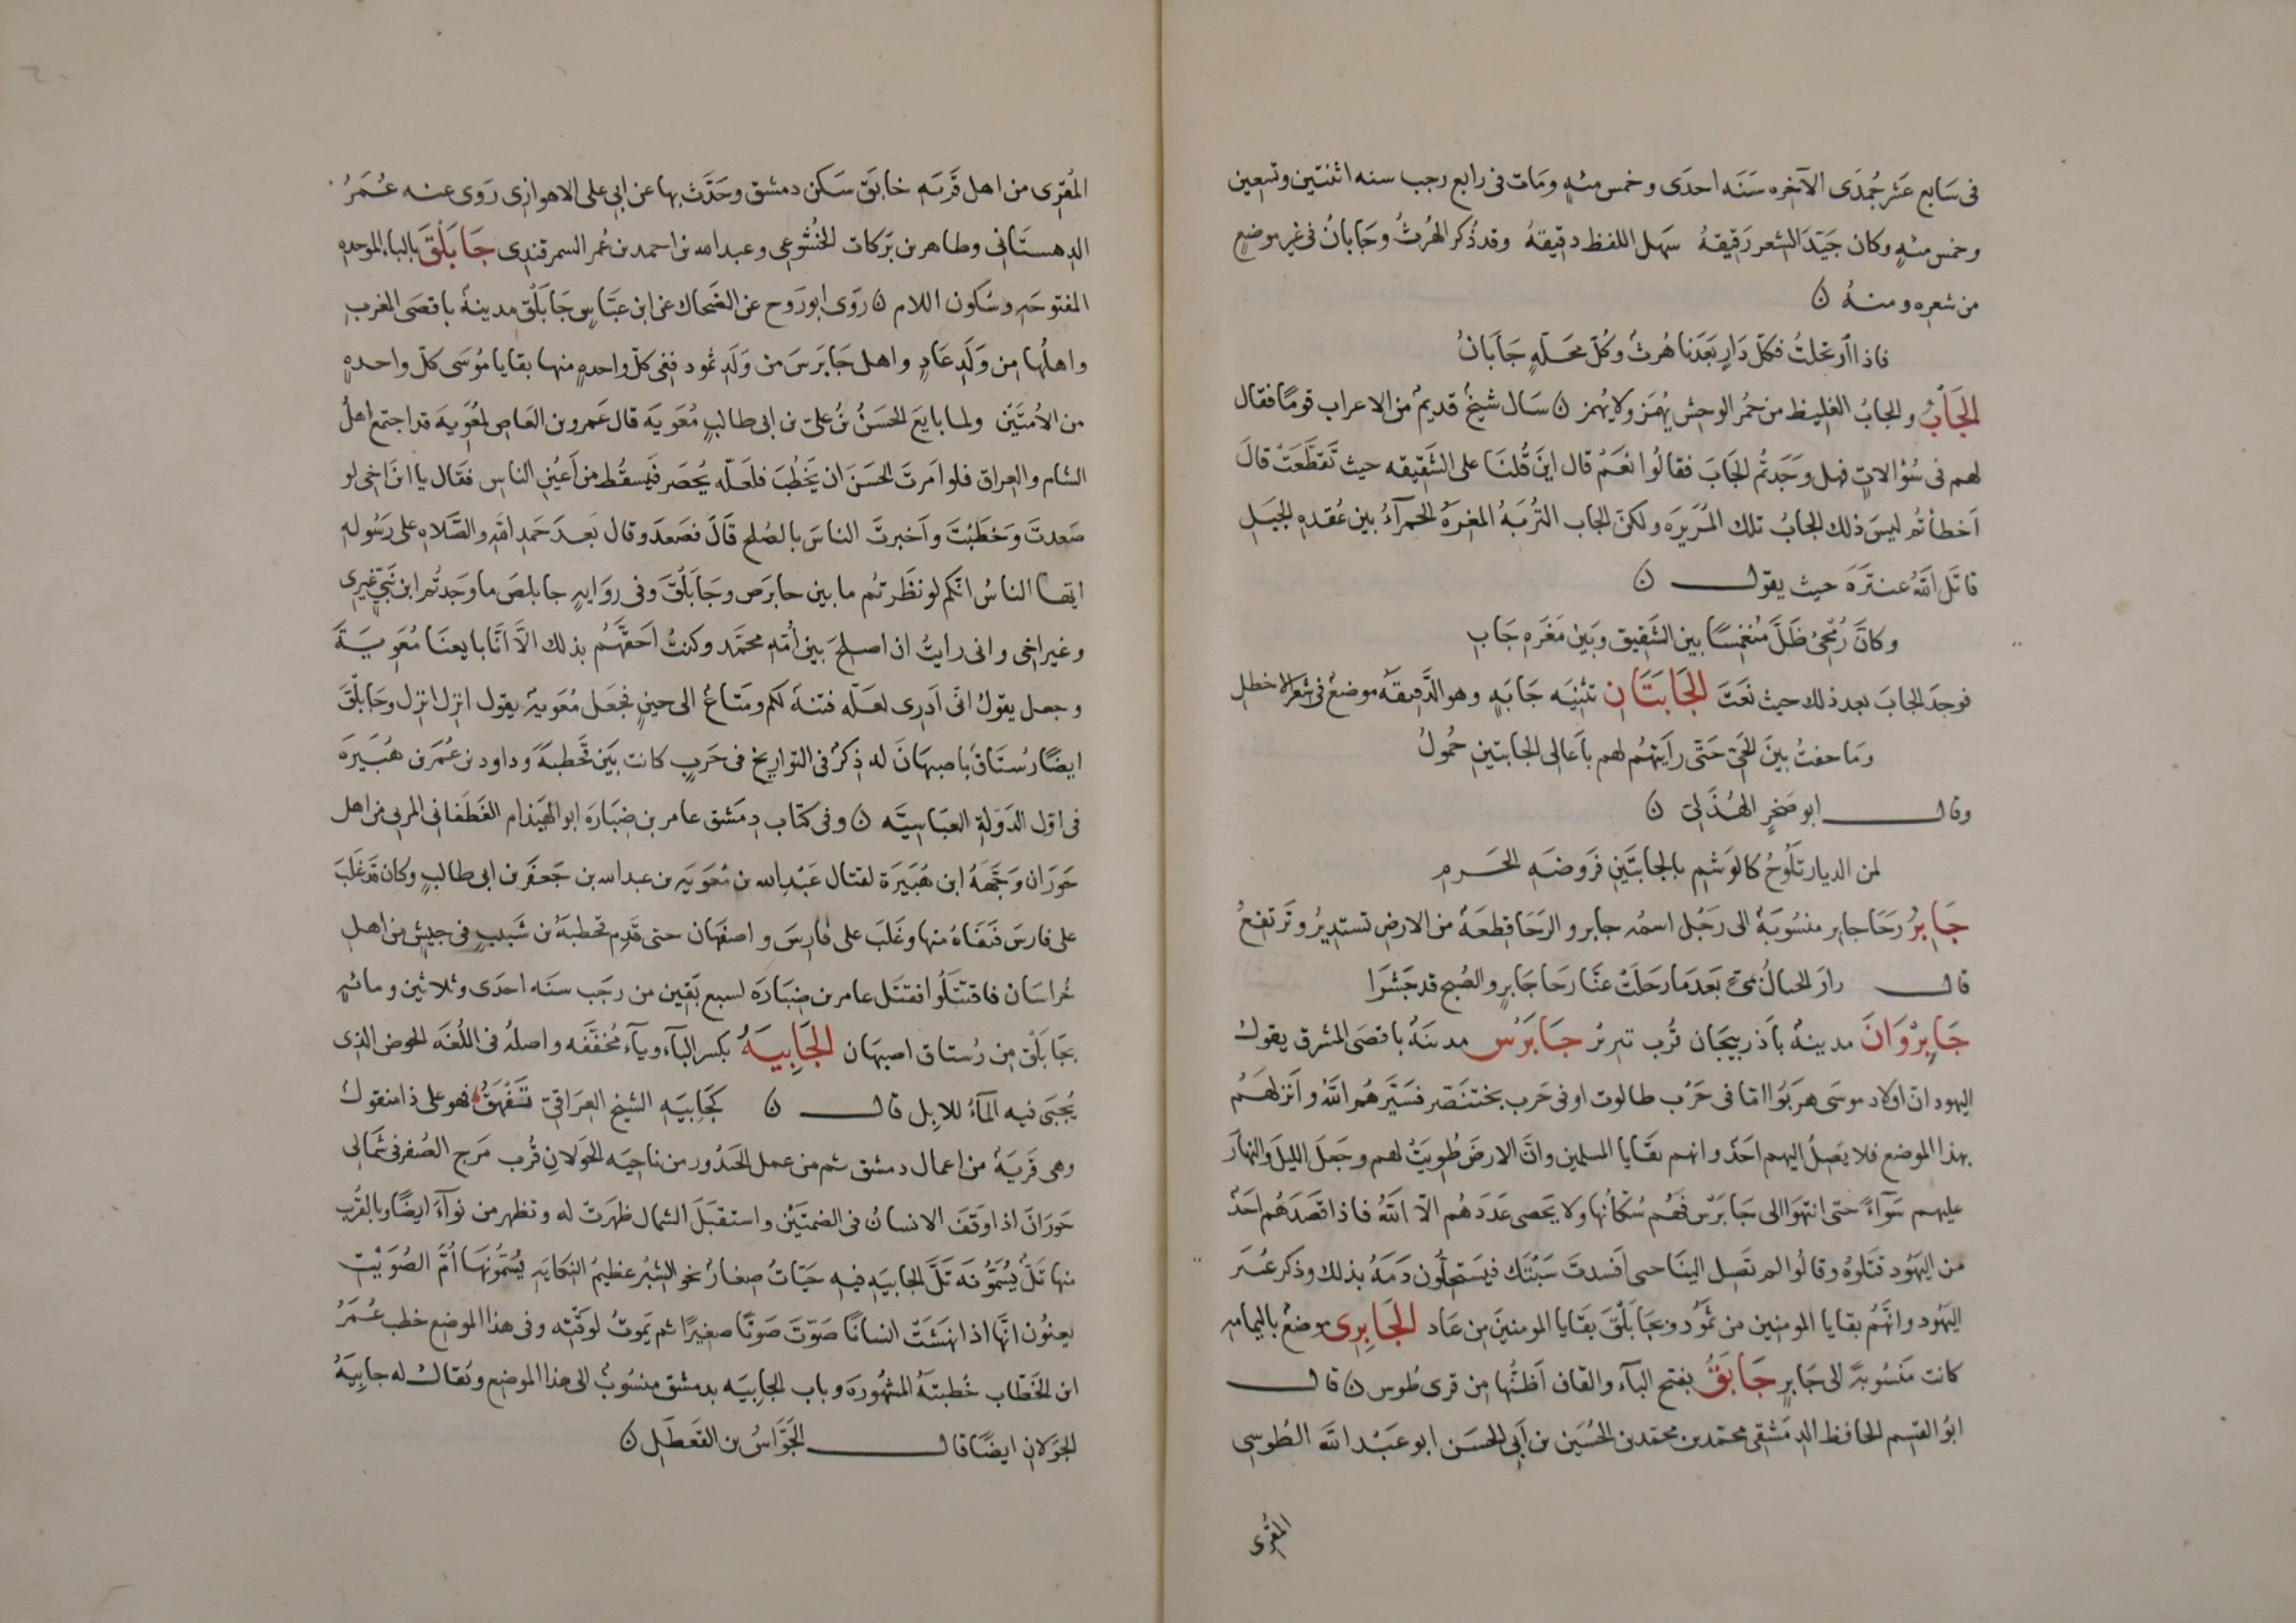 فى سَابع عَشر جُمدَى الآخره سَنَه احدَى وخمس مئةٍ ومَات فى رابع رجب سنه اثنتين وتسعين
وخمس مئةٍ وكان جَيّدَ الشعر رَقيقهُ سَهل اللفظ دقيقهُ وقد ذُكر الهُرثُ وجَابانُ فى غير موضعٍ
من شعره ومنهُ ن
فاذا اْرتحلتُ فكلّ دَارٍ بَعدَنا هُرثٌ وكُلّ محَلّهٍ جَابَانُ
الجَأبُ والجابُ الغليظ من حمُر الوحش يُهمَز ولا يُهمز ن سَال شيخٌ قديمٌ من الاعراب قومًا فقال
لهم فى سُؤالاتٍ فهل وَجَدتُم الجَابَ فقالُوا نعَمْ قال اينَ قُلنَا على الشَقيقه حيث تقَطَّعَتْ قالَ
اَخطأتُم ليسَ ذلك الجابُ تلك المُرَيرَه ولكن الجاب التُربَهُ المغرَهُ الحمرآءُ بين عُقدهِ الجبَلِ
قاتَل اللّهُ عنترَهَ حيث يقول ن
وكانَّ رُمحىْ ظَلَّ مُنغمِسًا بين الشَقيق وبَين مَغَرهِ جَابِ
فوجَدَ الجابَ بعد ذلك حيث نعَتَ الجَابَتَانِ تثنيَه جَابَهٍ وهو الدَّقيقَهُ موضعٌ فى شعر الاخطلِ
ومَا خفتُ بينَ الحَىّ حَتّى رايَتهُم لهم باعَالى الجابتينِ حُمُولُ
وقال ابو صَخرٍ الهُذَلىّ ن
لمن الديار تَلُوحُ كالوَشمِ بالجابتَينِ فَروضَهِ الحَزمِ
جَابِرُ رَحَا جابِر منسُوبَةٌ الى رَجُل اسمُه جابر والرَحَا قِطعَهٌ من الارضِ تستديرُ وتَرتفعُ
قال زارَ الخيالُ مَىّ بَعدَمَا رَحَلَتْ عنَّا رحَا جَابرٍ والصُبح قد جَشَرَا
جَابِرْوَانَ مدينهٌ باَذربيجَان قُرب تبريز جَابَرْس مدينَهٌ باقصَى المشرق يقولُ
اليهود انّ اولاد موسَى هربَوا امّا فى حَرْب طالوت او فى حَرب بختنَصّر فسَيّرهُم اللّهُ واَنزلهَمُ
بهذا الموضع فلا يَصِلُ اليهم احَدٌ وانهم بقَايا المسلمين وانّ الارضَ طُويَتْ لهم وجَعلَ الليلَ والنهارَ
عليهم سَوآءً حتى انتهَوا الى جَابَرْس فهُم سُكّانُها ولا يحَصى عَدَدَهُم الّا اللّهُ فاذا قصَدَهُم احَدٌ
من اليهُود قتَلوُه وقالُوا لم تَصِل الينَا حتى اَفسدتَ سَبْتَك فيَستحِلُون دَمَهُ بذلك وذكَر غيرُ
اليهُود وانَّهُم بقايا المومنين من ثمَودُ وبجَابَلْقَ بقَايا المومنينَ مِن عَاد الجَابِرِى موضعٌ باليمامه
كانت مَنسُوبَهً الى جَابرٍ جَابَقُ بفتح البآء والقاف اَظنُّها مِن قرى طُوس ن قال
ابوُ القسِم الحافظ الدِمَشقِى محمّد بن محمّد بن الحُسَين بن اَبِى الحسَن ابو عَبْد اللّه الطُوسِى
المقُرى
المُقرى من اهل قَريَه خابَق سَكَن دمشق وحَدَّثَ بها عن ابى على الاهوازى رَوى عنه عُمَرُ
الدهستَانى وطاهر بن بَركات الخُشُوعِى وعبد الله بن احمد بن عُمر السمرقندى جَابَلْقَ بالبآء الموحده
المفتوحَهِ وسُكون اللام ن رَوى ابو رَوح عن الضَحاك عن ابن عَبَّاسٍ جَابَلْقَ مدينهٌ باقصَى المغربِ
واهلُها مِن وَلَدِ عَادٍ واهل جَابَرسَ من وَلَدِ ثمُود ففى كلّ واحدهٍ منها بقايا مُوسَى كلّ واحدهٍ
من الأمّتَين ولما بايَعَ الحسَنُ بنُ علىّ بن ابى طالبٍ مُعَويَهَ قال عَمرو بن العَاص لمُعَويهَ قد اجتمع اهلُ
الشام والعراق فلو امَرتَ الحسَن ان يَخطُبَ فلعَلّه يُحصَر فيَسقُط من اَعيُن الناس فقَال يا ابنَ اَخى لو
صَعدتَ وخَطَبْتَ واَخبرتَ الناسَ بالصُلح قَالَ فصَعدَ وقال بَعدَ حَمد اللّه والصَّلاهِ على رسُوله
ايّها الناسُ انكم لو نظَرتُم ما بين جابرَص وجَابَلْقَ وفى روايهٍ جابلصَ ما وجَدتُم ابن نَبِىّ غيرى
وغير اخى وانى رايتُ ان اصلحَ بين اُمّهِ محمَّد وكنتُ اَحقهُّم بذلك الّا انَّا بايعنَا مُعَويَهَ
وجعل يقولُ انْ اَدرى لعَلّه فتنهٌ لكم ومَتاعٌ الى حينٍ فجعَل مُعَويهُ يقول انزل انزل وجَابَلْقَ
ايضًا رُستَاقٌ باصبهَانَ له ذِكرٌ فى التواريخ فى حَربٍ كانت بَين قَحطبهَ وداود بن عُمَر بن هُبَيرَه
فى اوّل الدَوّلةِ العبَاسِيَّه ن وفى كتاب دِمَشق عامر بن ضبَارَه ابو الهَيذام الغَطفانى المرىّ من اهل
حَورَان وَجّهَهُ ابن هُبَيَرَة لقتال عَبْد الله بن مُعَويَه بن عبد الله بن جَعفَر بن ابى طالبٍ وكان قد غلَبَ
على فارسَ فنَفَاهُ منها وغَلبَ على فارسَ واصفهَان حتى قَدِم قحطبَهُ بن شَبيبٍ فى جيشٍ من اهل
خُراسَان فاقتتَلُوا فقتل عامر بن ضبَارَه لسبع بَقين من رجَب سنَه احدَى وثلاثين ومائهٍ
بجَابَلْق مِن رُستاق اصبهَان الجَابِيَهُ بكسر البآء ويآء مُخفّفَه واصلُه فى اللُغَه الحوض الذى
يُجبَى فيه المآءُ للابِل قال ن كَجَابِيَهِ الشيخِ العِرَاقىّ تَفْهَقُ فهو على ذا منقولٌ
وهى قَريَهٌ من اعمال دمشق ثم من عمل الجَيدُور من ناحيَه الجَولانِ قُرب مَرج الصُفر فى شَمالى
حَورَانَ اذا وَقفَ الانسانُ فى الصَنمَيْن واستقبَلَ الشمال ظهَرت له وتظهر من نَوآءَ ايضًا وبالقُربِ
منها تَلٌّ يُسَمُّونَه تَلَّ الجابيَهِ فيهِ حيَّاتٌ صغارٌ نحو الشبْر عظيمُ النِكايَهِ يُسَمُّونهَا اُمَّ الصُوَيْتِ
يعنُون انَّها اذا نهَشَتْ انسانًا صَوّتَ صَوتًا صغيرًا ثم يَموتُ لوقتِه وفى هذا الموضع خطب عُمَرُ
ابن الخَطّاب خُطبتَهُ المشهُورَه وباب الجابِيَه بدمشق منسُوبٌ الى هذا الموضع ويُقالُ له جابِيَهُ
الجَولانِ ايضًا قال الجَوّاسُ بن القعَطَلِ ن